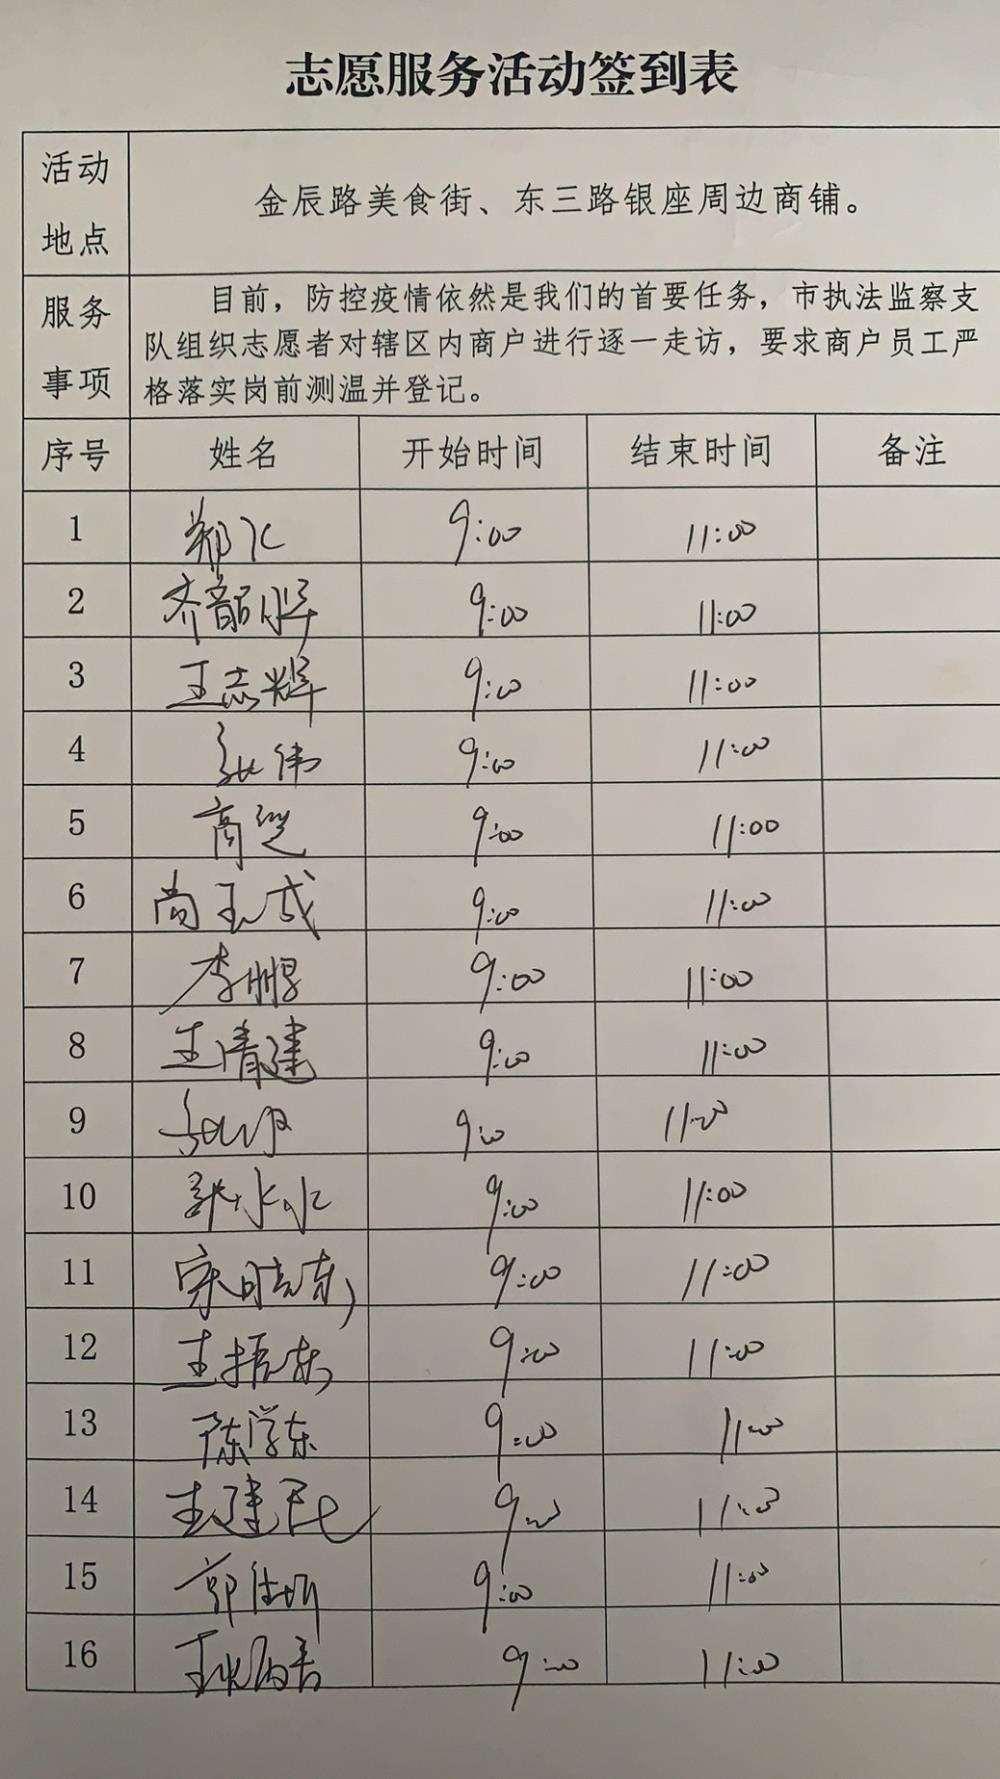 志愿服务活动签到表
活动地点 金辰路美食街、东三路银座周边商铺。
服务事项 目前，防控疫情依然是我们的首要任务，市执法监察支
队组织志愿者对辖区内商户进行逐一走访，要求商户员工严
格落实岗前测温并登记。
序号 姓名 开始时间 结束时间 备注
1 9:00 11:00
2 齐韶晖 9:00 11:00
3 王志辉 9:00 11:00
4 张伟 9:00 11:00
5 9:00 11:00
6 尚玉成 9:00 11:00
7 李鹏 9:00 11:00
8 王清建 9:00 11:00
9 9:00 11:00
10 9:00 11:00
11 宋晓东 9:00 11:00
12 王振东 9:00 11:00
13 陈学东 9:00 11:00
14 王建民 9:00 11:00
15 郭 9:00 11:00
16 王 9:00 11:00